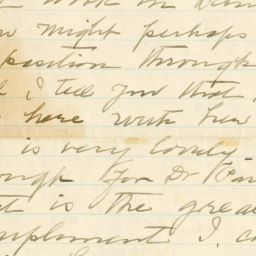 work in
might perhaps
position through
I tell you that
here with her
is very lovely
for Dr
t is the grea
mplement I c